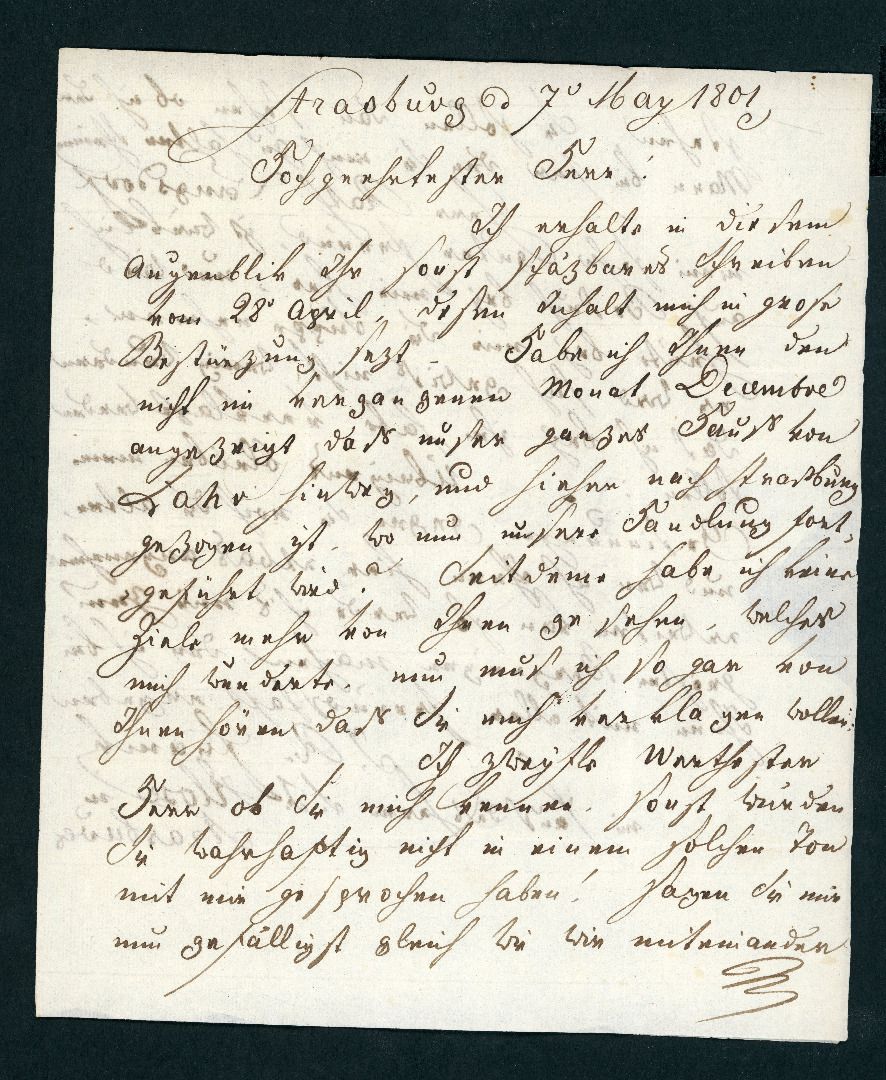 Strasburg d 7ᵗ May 1801
Hochgeehrtester Herr!
Ich erhalte in diesem
Augenblik Ihr sonst schäzbares Schreiben
vom 28ᵗ April, dessen Inhalt mich in grose
Bestürzung sezt – Habe ich Ihnen den
nicht im vergangenen Monat Decembre
angezeigt daß unser ganzes Hauß von
Lahr hinweg, und hieher nach Straßburg
gezogen ist, wo nun unsere Handlung fort
geführt wird? Seitdeme habe ich keine
Ziele mehr von Ihnen gesehen, welches
mich wunderte, nun muß ich so gar von
Ihnen hören daß Sie mich verklagen wollen.
Ich zweyfle Werthester
Herr ob Sie mich kennen, sonst würden
Sie wahrhaftig nicht in einem solchen Ton
mit mir gesprochen haben! Sagen Sie mir
nun gefälligst gleich wie wir miteinander